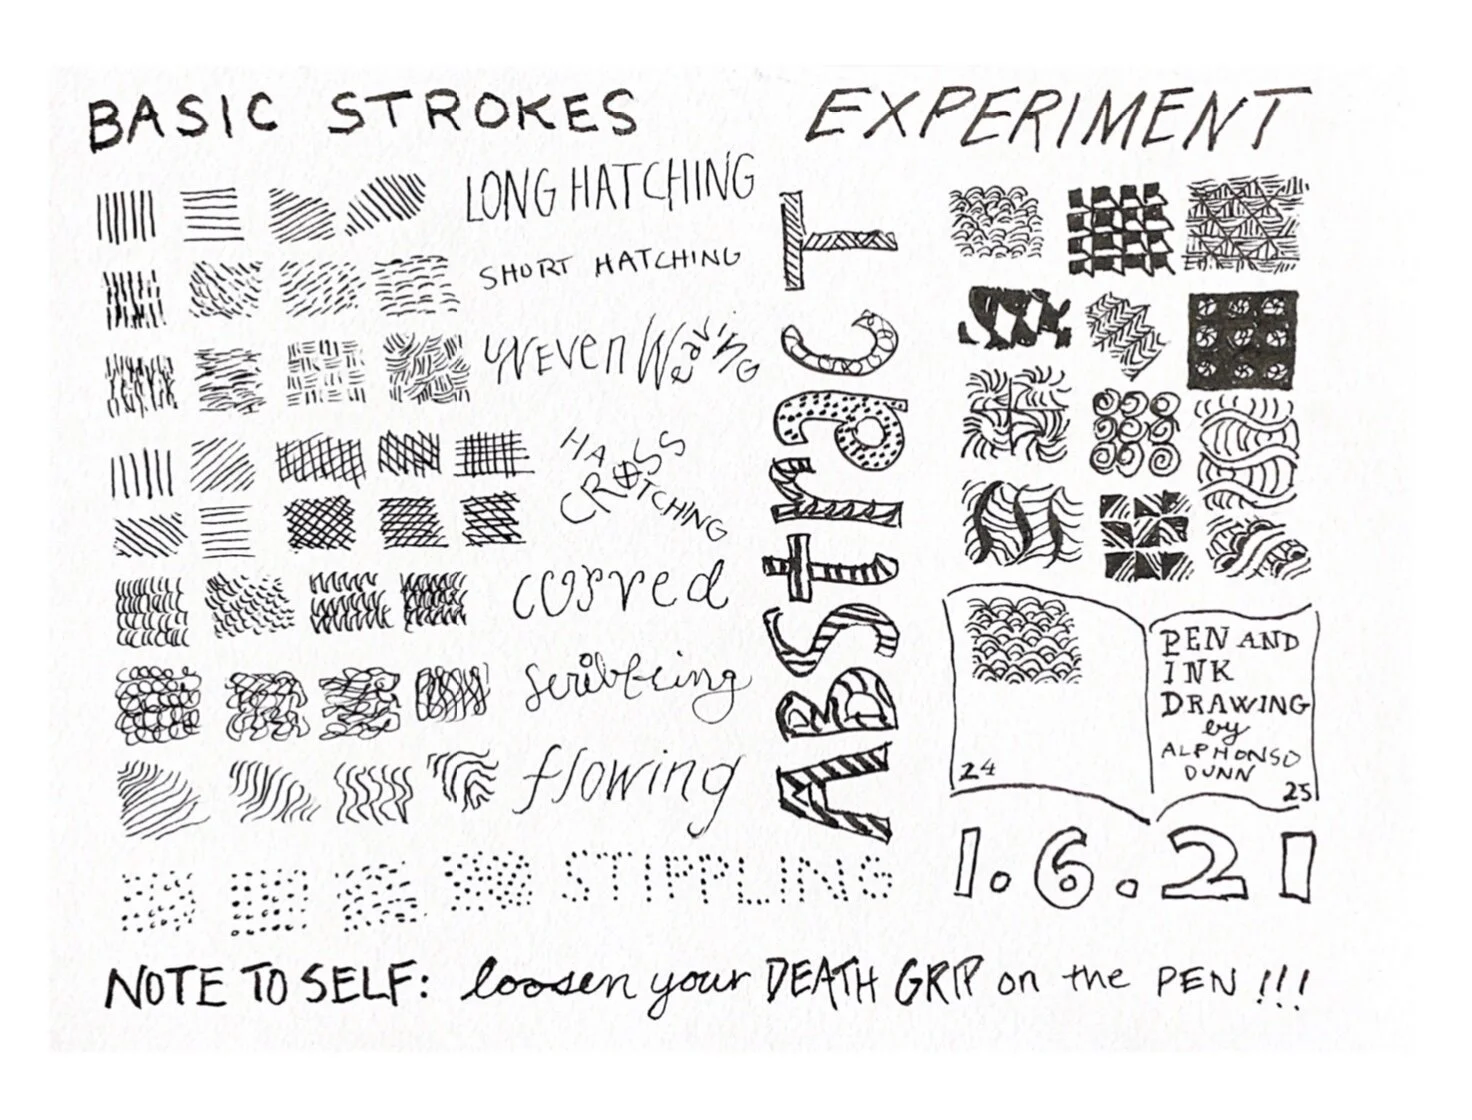 BASIC STROKES
LONG HATCHING
SHORT HATCHING
UNEVEN Weaving
CROSS
HATCHING
curved
scribbling
flowing
STIPPLING
ABstracT
EXPERIMENT
24
PEN AND
INK
DRAWING
by
ALPHONSO
DUNN
25
1.6.21
NOTE TO SELF: loosen your DEATH GRIP on the PEN!!!